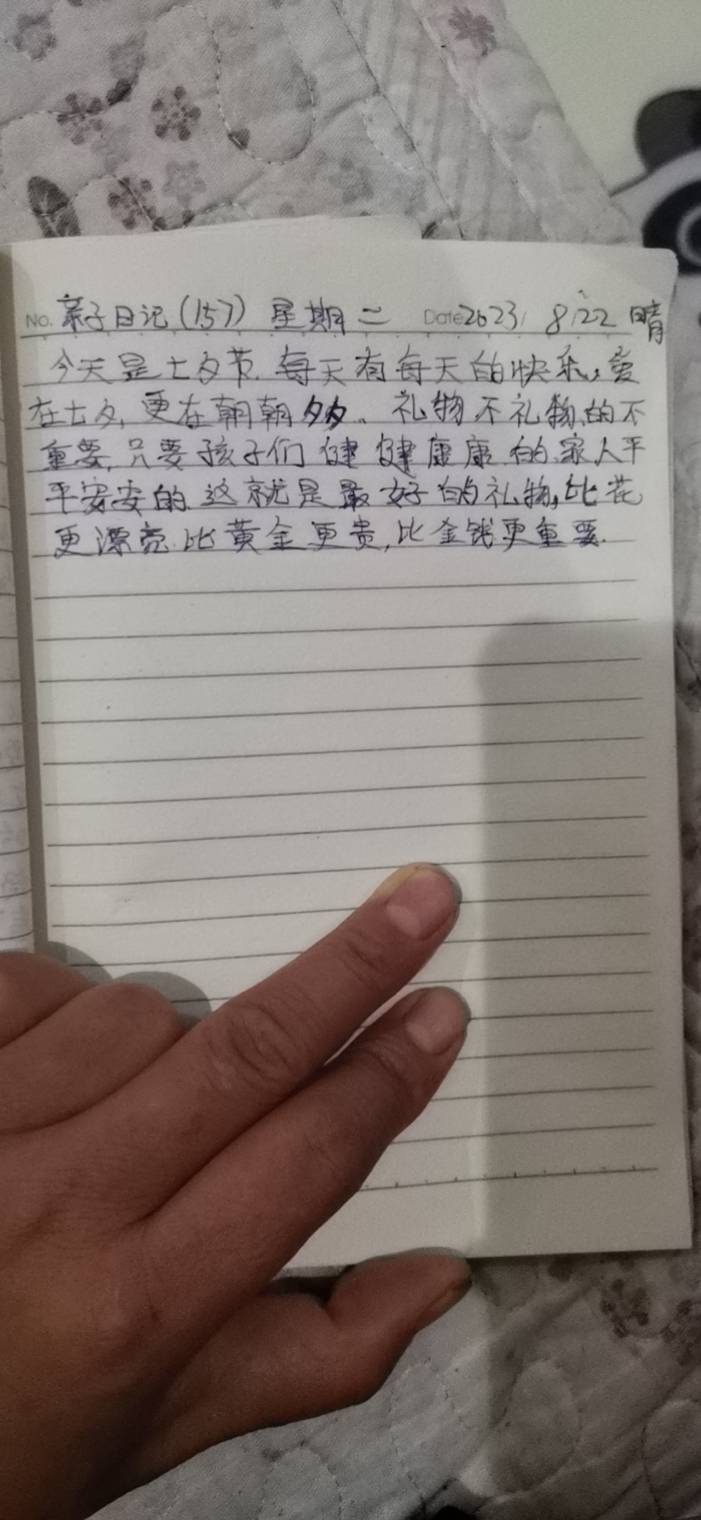 No. 亲子日记(157) 星期二 Date 2023/ 8.22 晴
今天是七夕节.每天有每天的快乐,爱
在七夕,更在朝朝夕夕。礼物不礼物的不
重要,只要孩子们健健康康的,家人平
平安安的.这就是最好的礼物,比花
更漂亮.比黄金更贵,比金钱更重要.